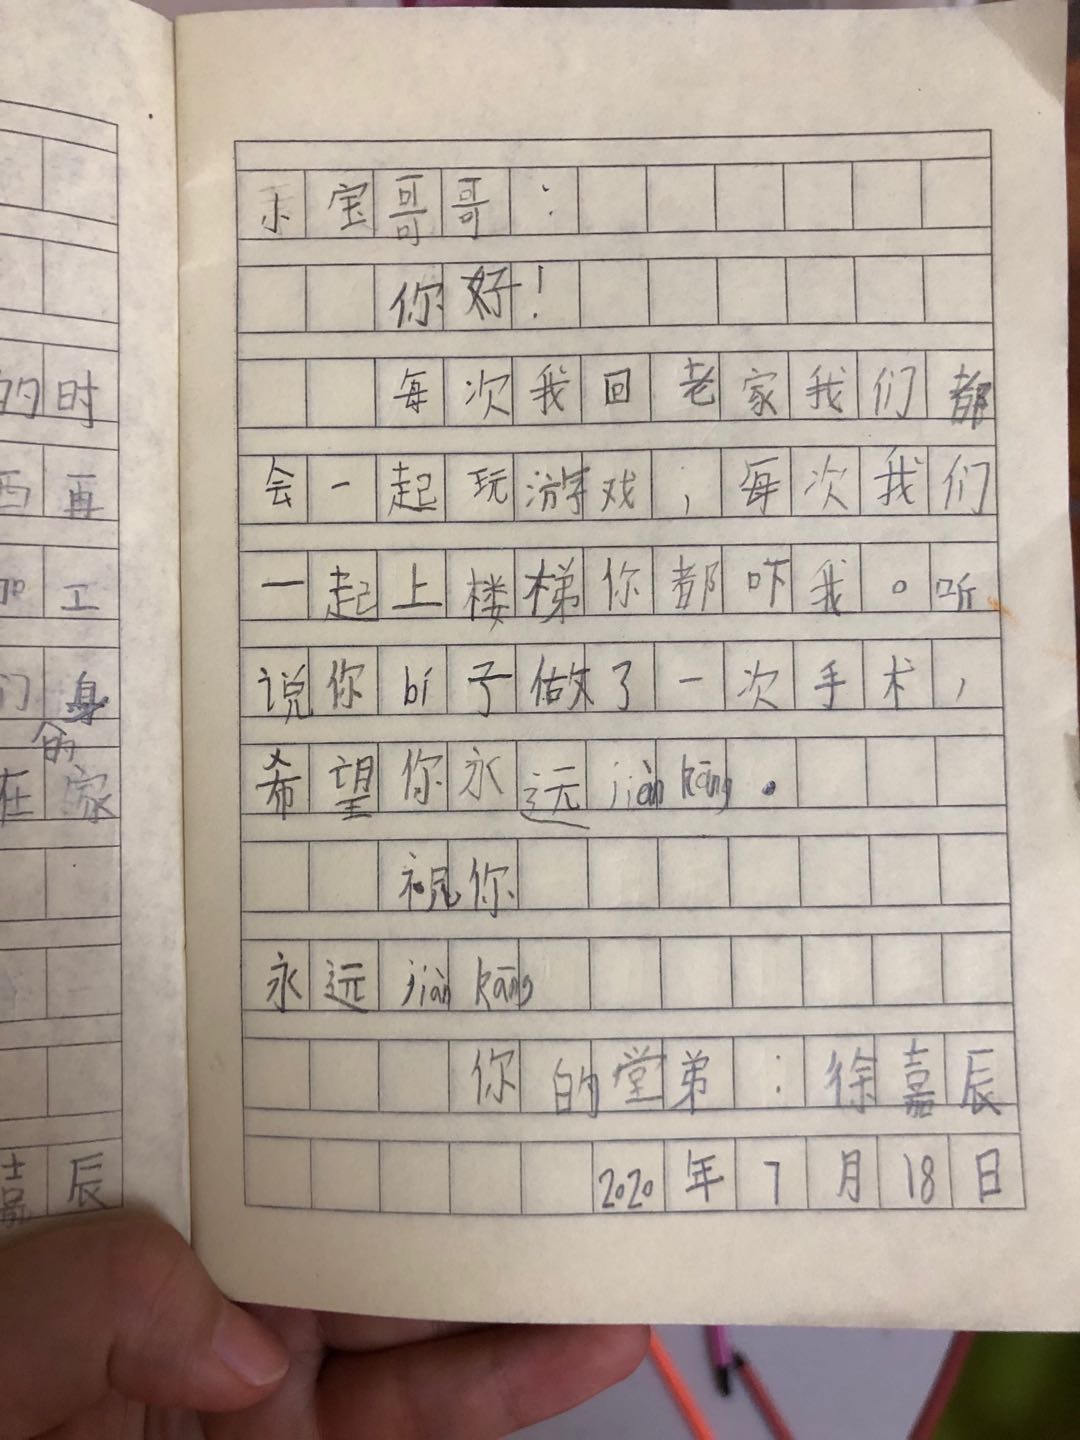 的时
西再
加工
们身
的
在家
嘉辰
宝哥哥：
你好！
每次我回老家我们都
会一起玩游戏，每次我们
一起上楼梯你都吓我。听
说你bí子做了一次手术，
希望你永远jiàn kāng。
祝你
永远jiàn kāng
你的堂弟：徐嘉辰
2020年7月18日